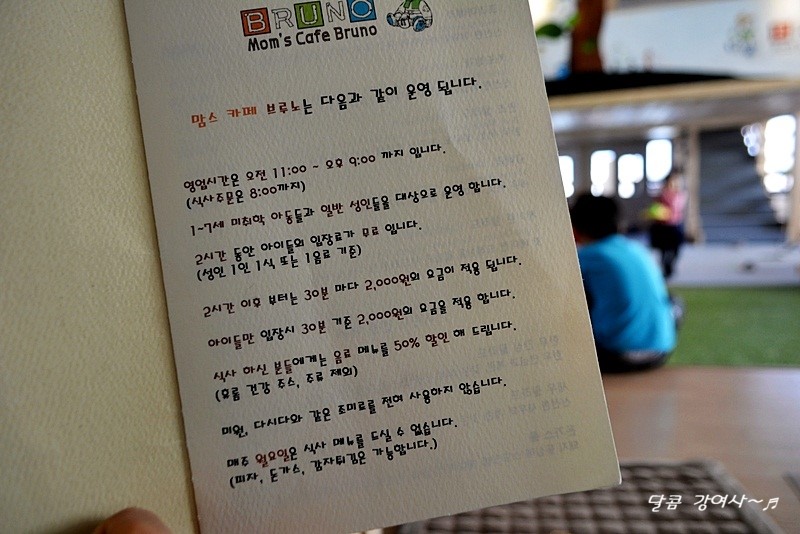 BRUNO
Mom's Cafe Bruno
맘스 카페 브루노는 다음과 같이 운영 됩니다.
영업시간은 오전 11:00 ~ 오후 9:00 까지 입니다.
(식사주문은 8:00까지)
1~7세 미취학 아동들과 일반 성인들을 대상으로 운영 합니다.
2시간 동안 아이들의 입장료가 무료 입니다.
(성인 1인 1식 또는 1음료 기준)
2시간 이후 부터는 30분 마다 2,000원의 요금이 적용 됩니다.
아이들만 입장시 30분 기준 2,000원의 요금을 적용 합니다.
식사 하신 분들에게는 음료 메뉴를 50% 할인 해 드립니다.
(유름 건강 주스, 주류 제외)
미원, 다시다와 같은 조미료를 전혀 사용하지 않습니다.
매주 월요일은 식사 메뉴를 드실 수 없습니다.
(피자, 돈가스, 감자튀김은 가능합니다.)
달콤 강여사~♬